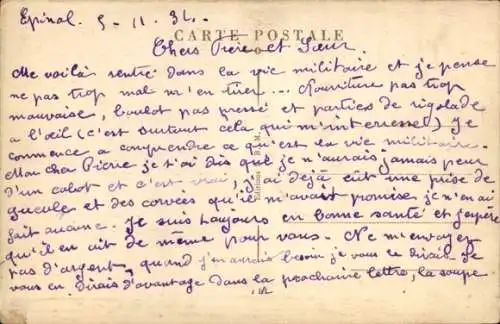 Epinal. 5-11-31.
CARTE POSTALE
Chers Frère et Sœur.
Me voilà rentré dans la vie militaire et je pense
ne pas trop mal m'en tirer... Nourriture pas trop
mauvaise, boulot pas pressé et parties de rigolade
a l'œil (c'est surtout cela qui m'interresse) Je
commence a comprendre ce qu'est la vie militaire.
Mon cher Pierre je t'ai dis que je n'aurais jamais peur
d'un cabot et c'est vrai, j'ai déjà eût une prise de
gueule et des corvées qu'il m'avait promise je n'en ai
fait aucune. Je suis toujours en bonne santé et j'espère
qu'il en ait de même pour vous. Ne m'envoyez
pas d'argent, quand j'en aurais besoin je vous le dirais. Je
vous en dirais d'avantage dans la prochaine lettre, la soupe
Editions